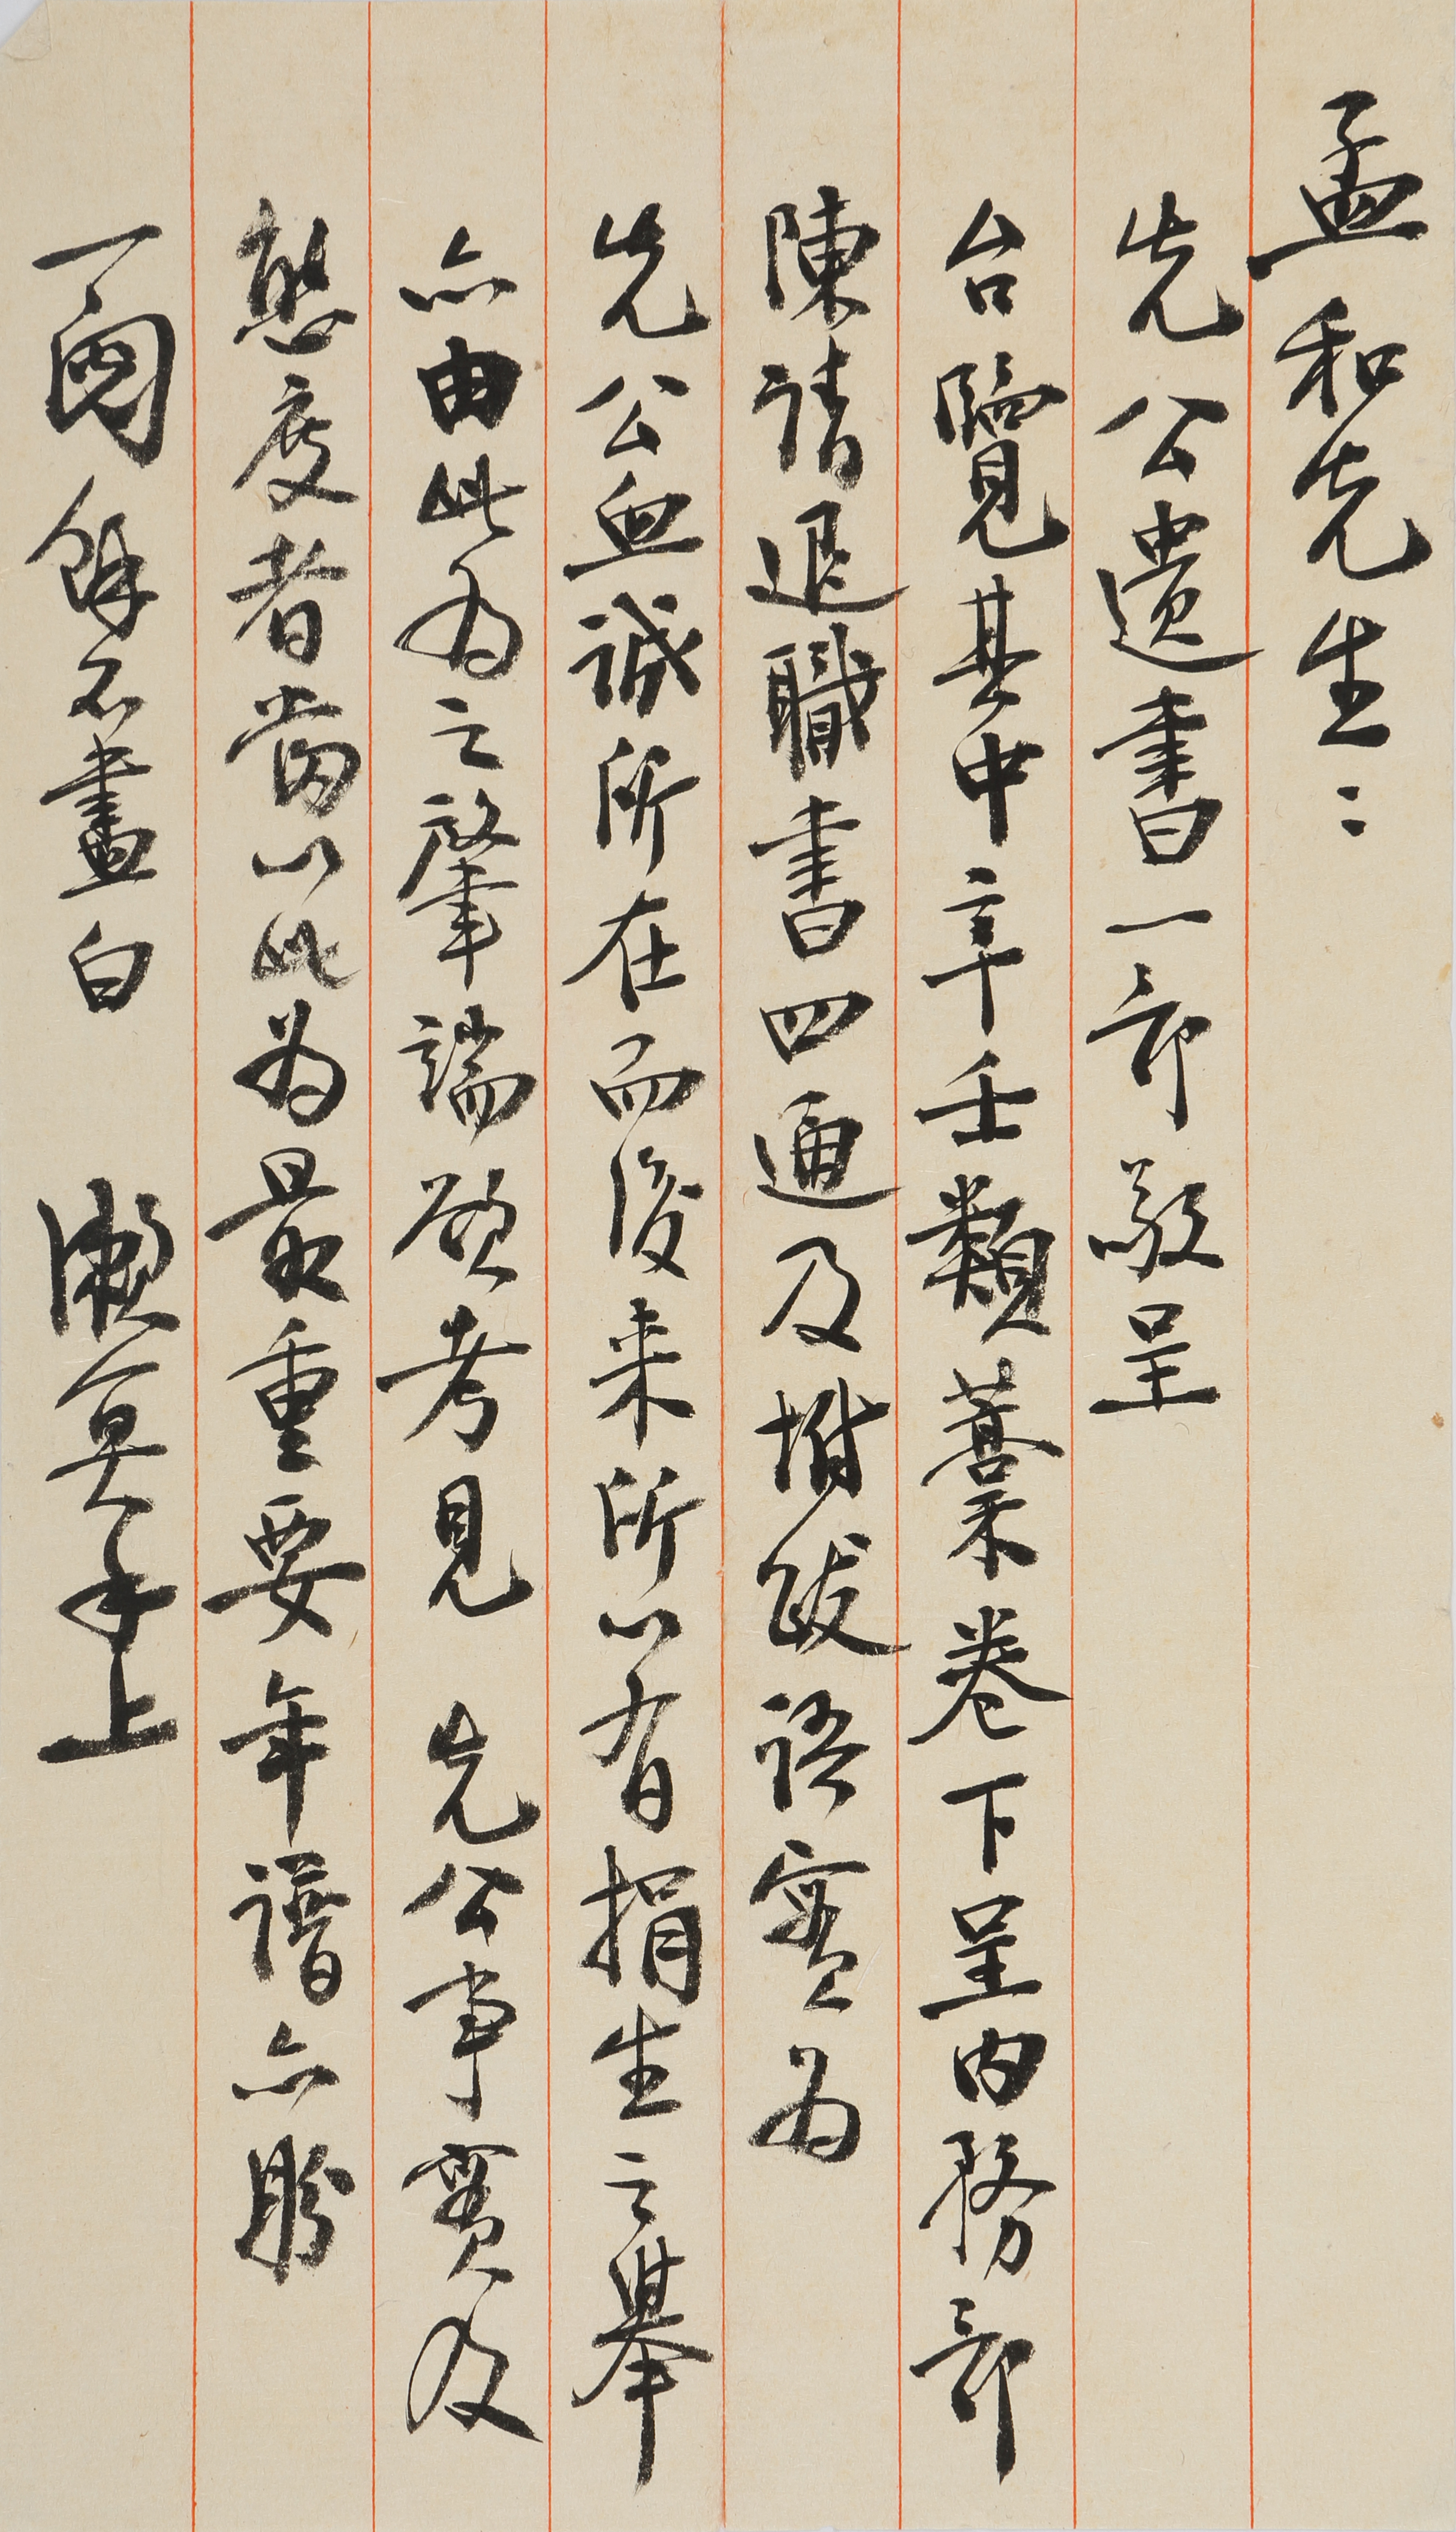 孟和先生：
先公遺書一部敬呈
台覽其中辛壬類藁卷下呈内務部
陳請退職書四通及坿跋語實為
先公血誠所在而後来所以有捐生之舉
亦由此為之肇端欲考見 先公事實及
態度者當以此為最重要年譜亦盼
一閱餘不盡白 漱冥手上